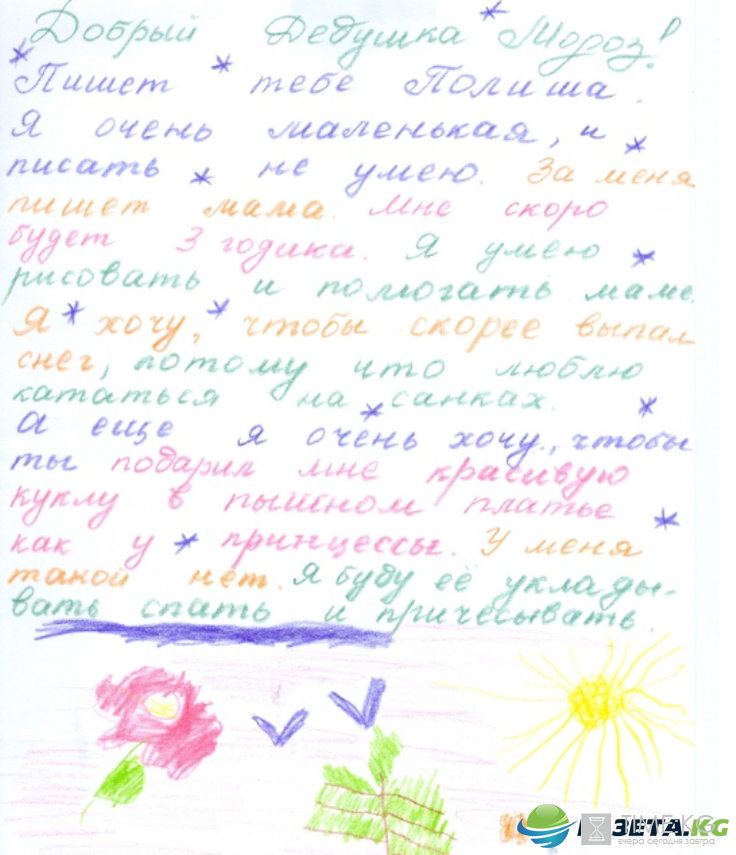 Добрый Дедушка Мороз!
Пишет тебе Полиша.
Я очень маленькая, и
писать не умею. За меня
пишет мама. Мне скоро
будет 3 годика. Я умею
рисовать и помогать маме.
Я хочу, чтобы скорее выпал
снег, потому что люблю
кататься на санках.
А еще я очень хочу, чтобы
ты подарил мне красивую
куклу в пышном платье
как у принцессы. У меня
такой нет. Я буду её уклады-
вать спать и причесывать.
ЗЕТА.KG
вчера сегодня завтра